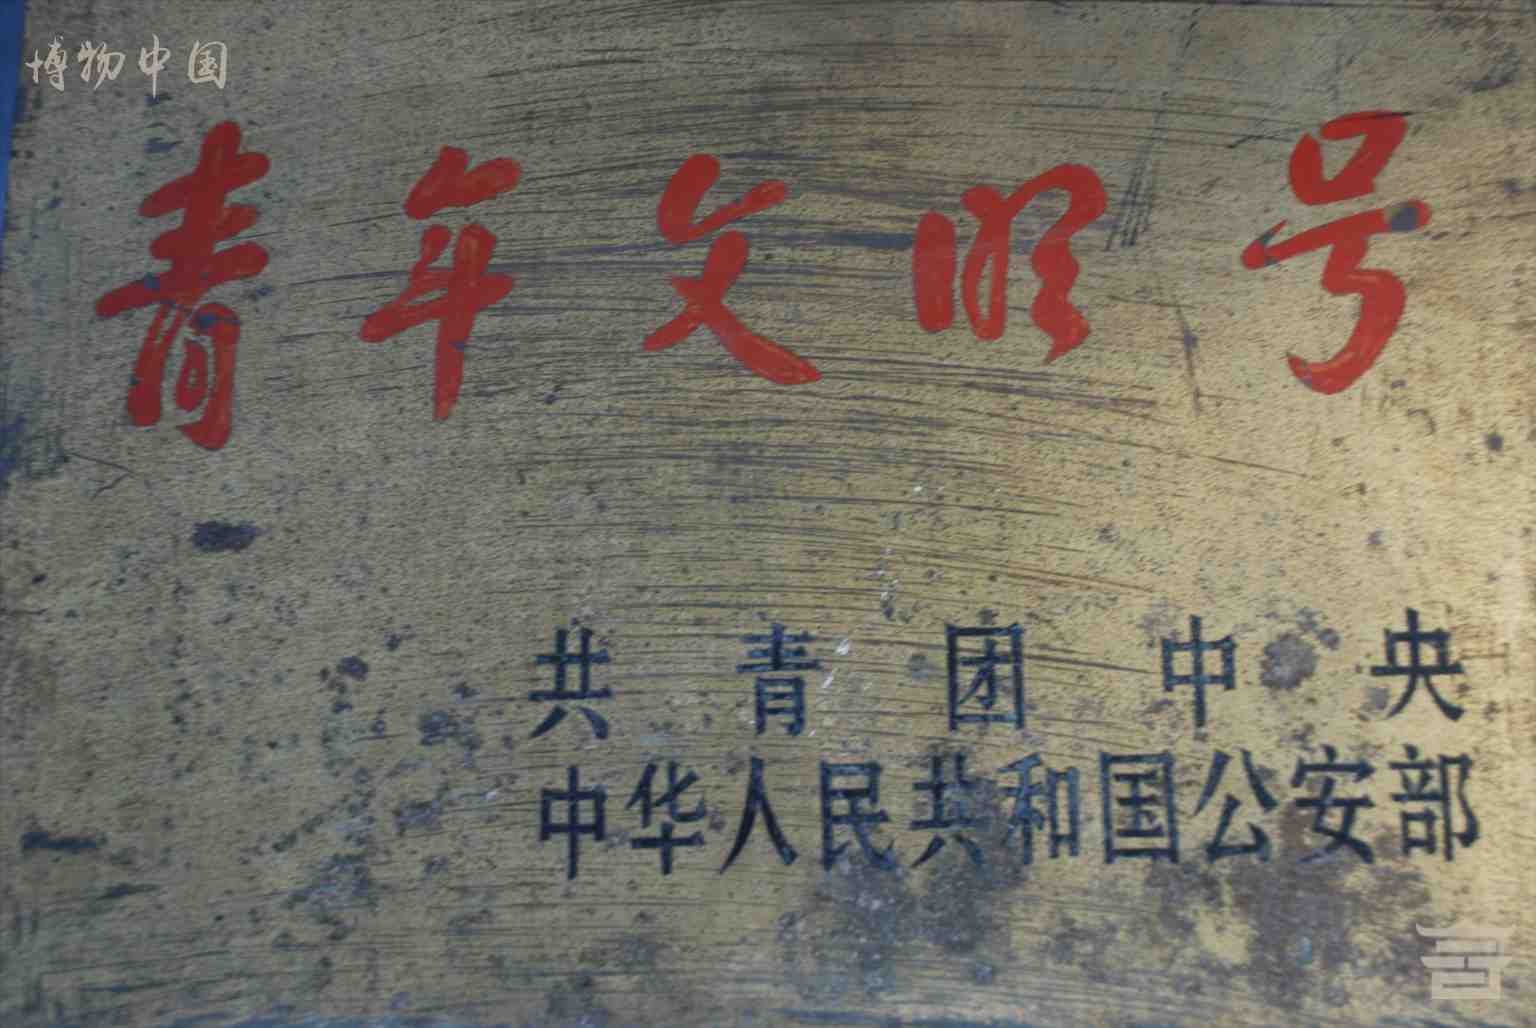 博物中国
青年文明号
共青团中央
中华人民共和国公安部